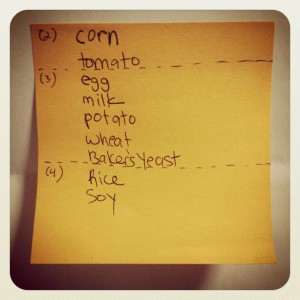 (2) corn
tomato
(3) egg
milk
potato
wheat
Baker's Yeast
(4) Rice
Soy